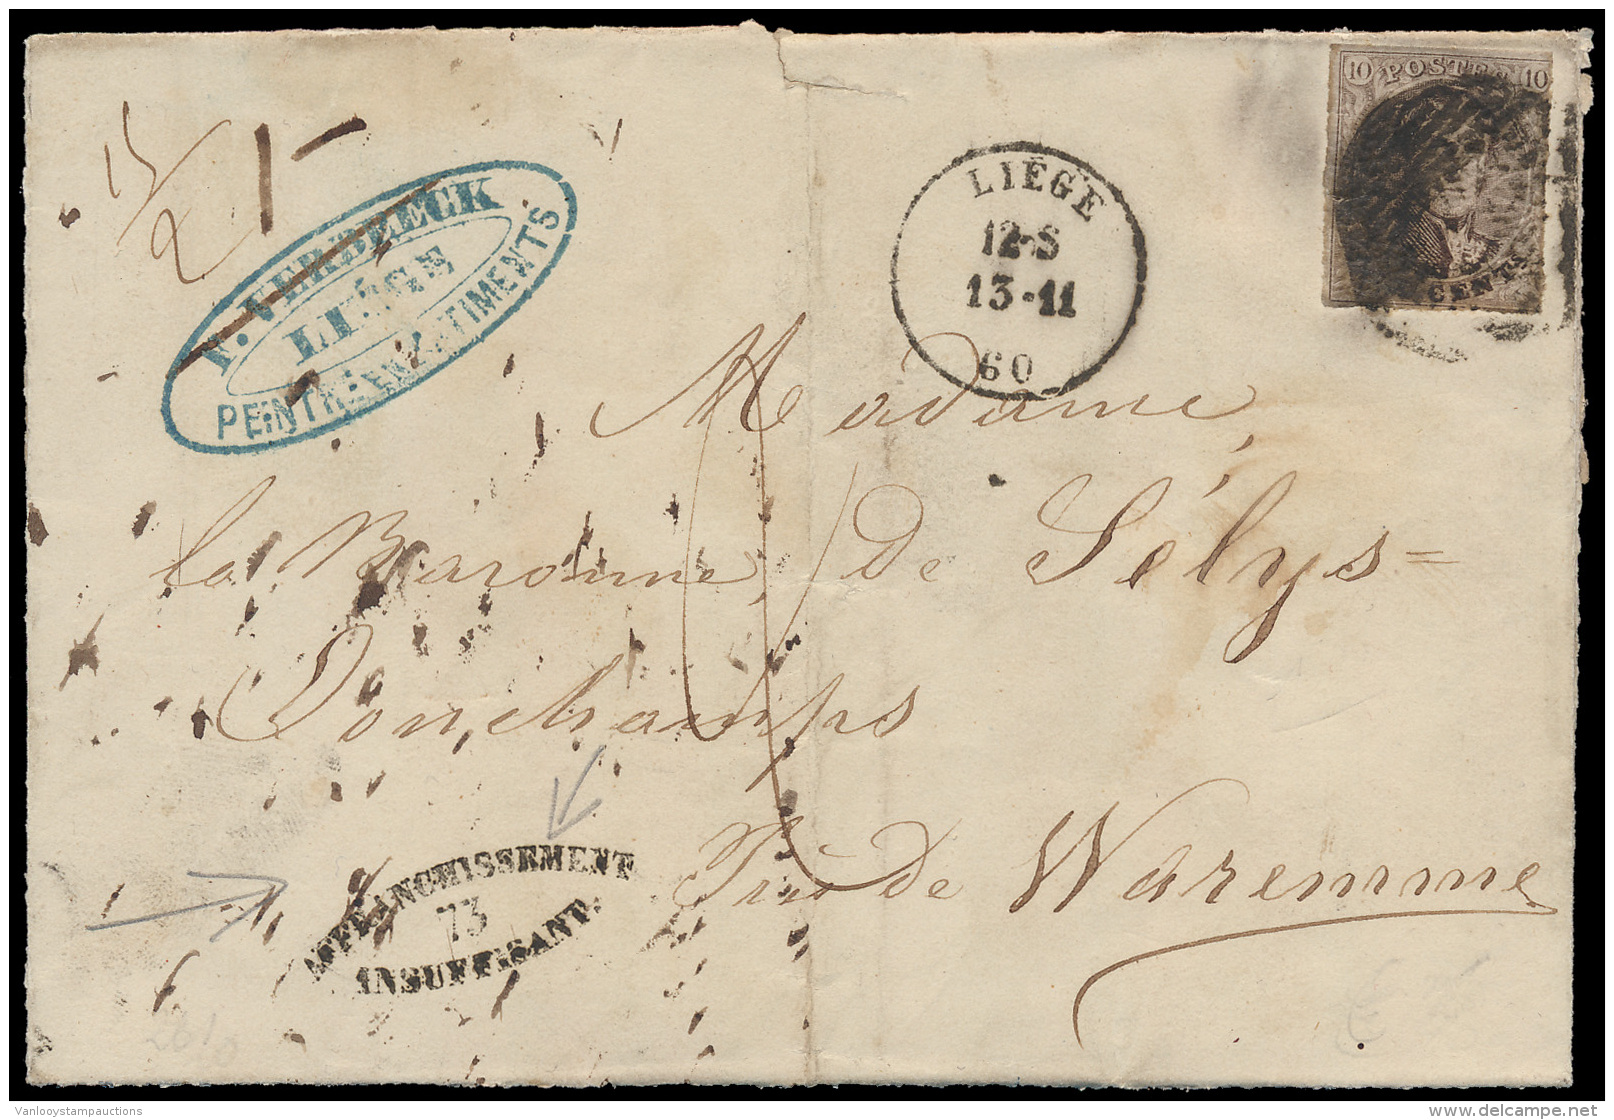 10 POSTES 10
CENTS
LIÉGE
12-S
13-11
60
F. VERBEECK
LIEGE
PEINTRE EN BATIMENTS
Madame,
la Baronne, de Sélys=
Donchamps
Près de Waremme
AFFRANCHISSEMENT
73
INSUFFISANT.
Vanlooystampauctions
delcampe.net